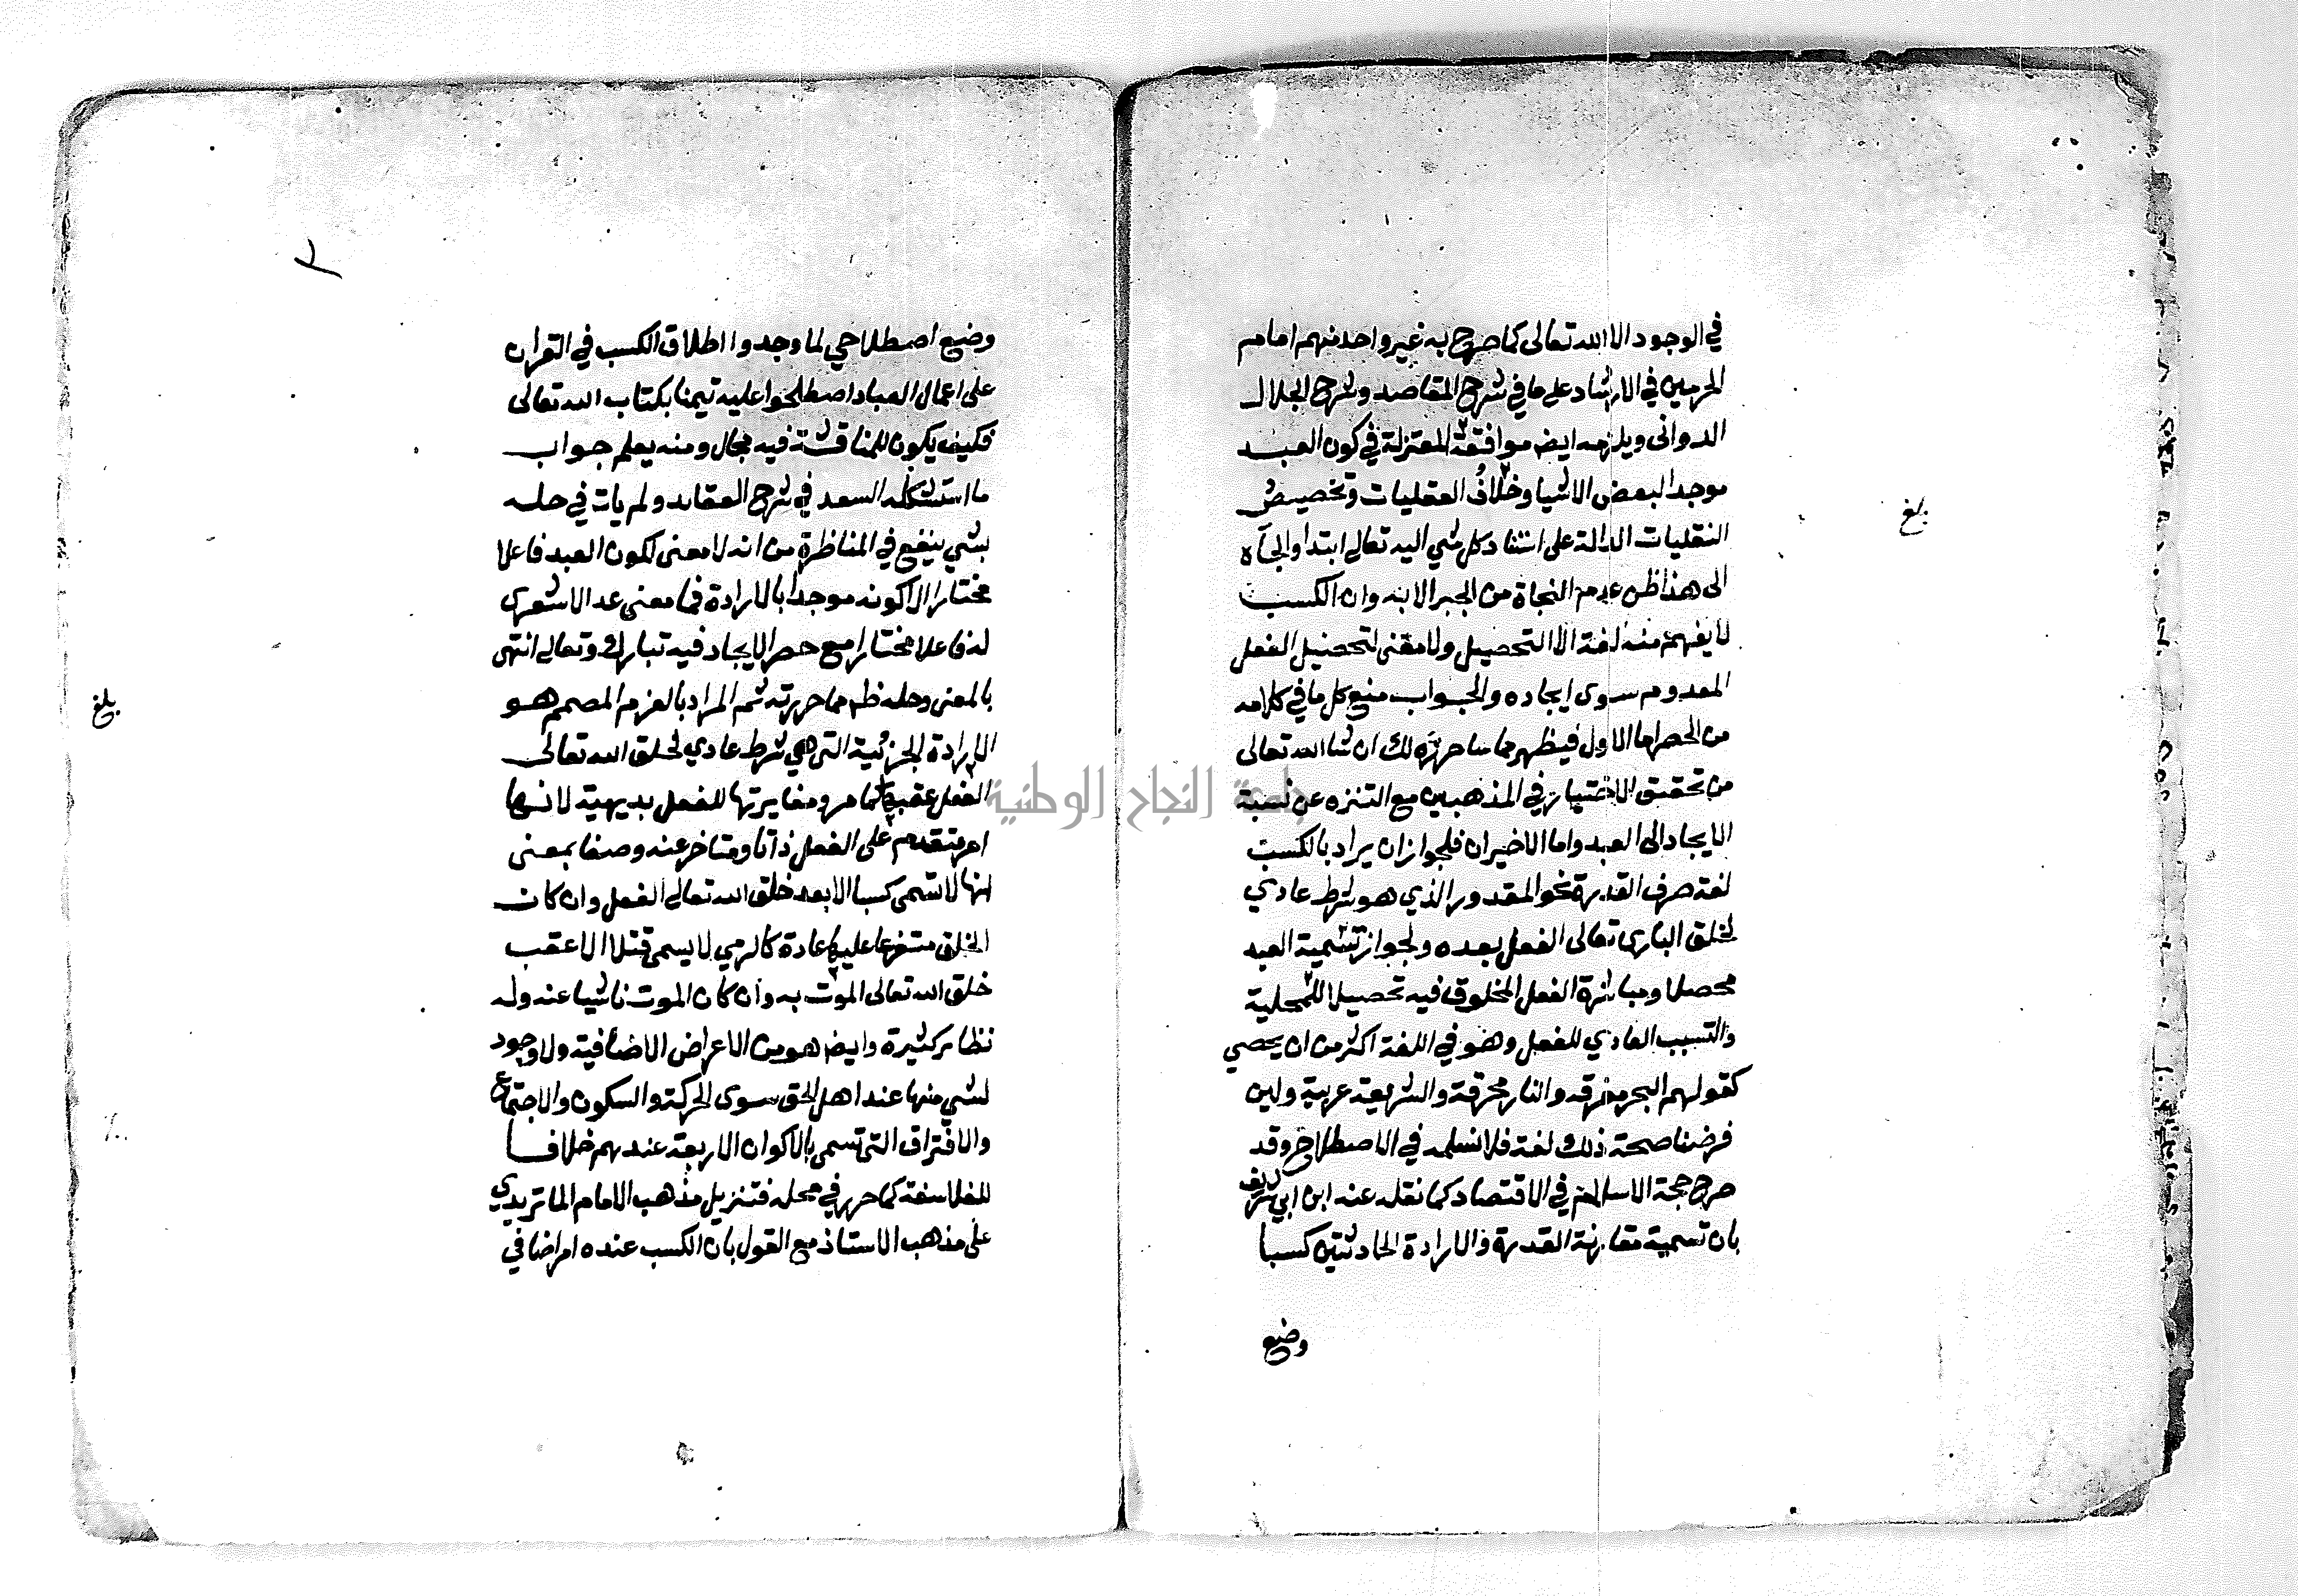 في الوجود الا الله تعالى كما صرح به غير واحد منهم امام
الحرمين في الارشاد على ما في شرح المقاصد وشرح الجلال
الدوانى ويلزمه ايضا موافقة المعتزلة في كون العبد
موجدا لبعض الاشيا وخلاف العقليات وتخصيص
النقليات الدالة على استناد كل شي اليه تعالى ابتدا والجآه
الى هذا ظن عدم النجاة من الجبر الا به وان الكسب
لا يفهم منه لغة الا التحصيل ولا معنى لتحصيل الفعل
المعدوم سوى ايجاده والجواب منع كل ما في كلامه
من الحصر اما الاول فيظهر مما ساحرره لك ان شا الله تعالى
من تحقيق الاختيار في المذهبين مع التنزه عن نسبة
الايجاد الى العبد واما الاخيران فلجواز ان يراد بالكسب
لغة صرف القدرة نحو المقدور الذي هو شرط عادي
لخلق البارى تعالى الفعل بعده ولجواز تسمية العبد
محصلا ومباشرة الفعل المخلوق فيه تحصيلا للمحلية
والتسبب العادي للفعل وهو في اللغة اكثر من ان يحصي
كقولهم البحر مغرقه والنار محرقة والشريعة عربية ولين
فرضنا صحة ذلك لغة فلا نسلمه في الاصطلاح وقد
صرح حجة الاسلام في الاقتصاد كما نقله عنه ابن ابي شريف
بان تسمية مقارنة القدرة والارادة الحادثتين كسبا
وضع
جامعة النجاح الوطنية
٢
وضع اصطلاحي لما وجدوا اطلاق الكسب في القران
على اعمال العباد اصطلحوا عليه تيمنا بكتاب الله تعالى
فكيف يكون للمناقشة فيه مجال ومنه يعلم جواب
ما استشكله السعد في شرح العقايد ولم يات في حله
بشي ينفع في المناظرة من انه لا معنى لكون العبد فاعلا
مختارا الا كونه موجدا بالارادة فما معنى عد الاشعرى
له فاعلا مختارا مع حصر الايجاد فيه تبارك وتعالى انتهى
بالمعنى وحله ظهر مما حررته ثم المراد بالعزم المصمم هو
الارادة الجزئية التى هي شرط عادي لخلق الله تعالى
الفعل عقبها كما مر ومغايرتها للفعل بديهية لانها
امر متقدم على الفعل ذاتا ومتاخر عنه وصفا بمعنى
انها لا تسمى كسبا الا بعد خلق الله تعالى الفعل وان كان
الخلق متفرعا عليها عادة كالرمي لا يسمى قتلا الا عقب
خلق الله تعالى الموت به وان كان الموت ناشيا عنه وله
نظاير كثيرة وايضا هو من الاعراض الاضافية ولا وجود
لشي منها عند اهل الحق سوى الحركة والسكون والاجتماع
والافتراق التى تسمى بالاكوان الاربعة عندهم خلافا
للفلاسفة كما حرر في محله فتنزيل مذهب الامام الماتريدي
على مذهب الاستاذ مع القول بان الكسب عنده امر اضافي
بلغ
بلغ